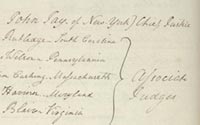 John Jay, of New York, Chief Justice
Rutledge - South Carolina
Wilson - Pennsylvania
Cushing, Massachusetts
Harrison, Maryland
Blair - Virginia
Associate
Judges